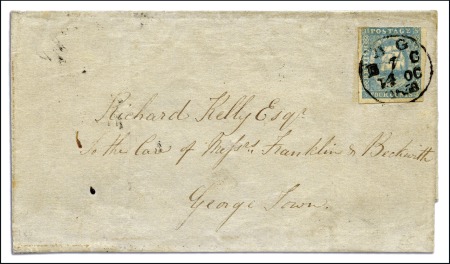 POSTAGE
Richard Kelly Esqr
to the Care of Messrs Franklin & Beckwith
George Town.